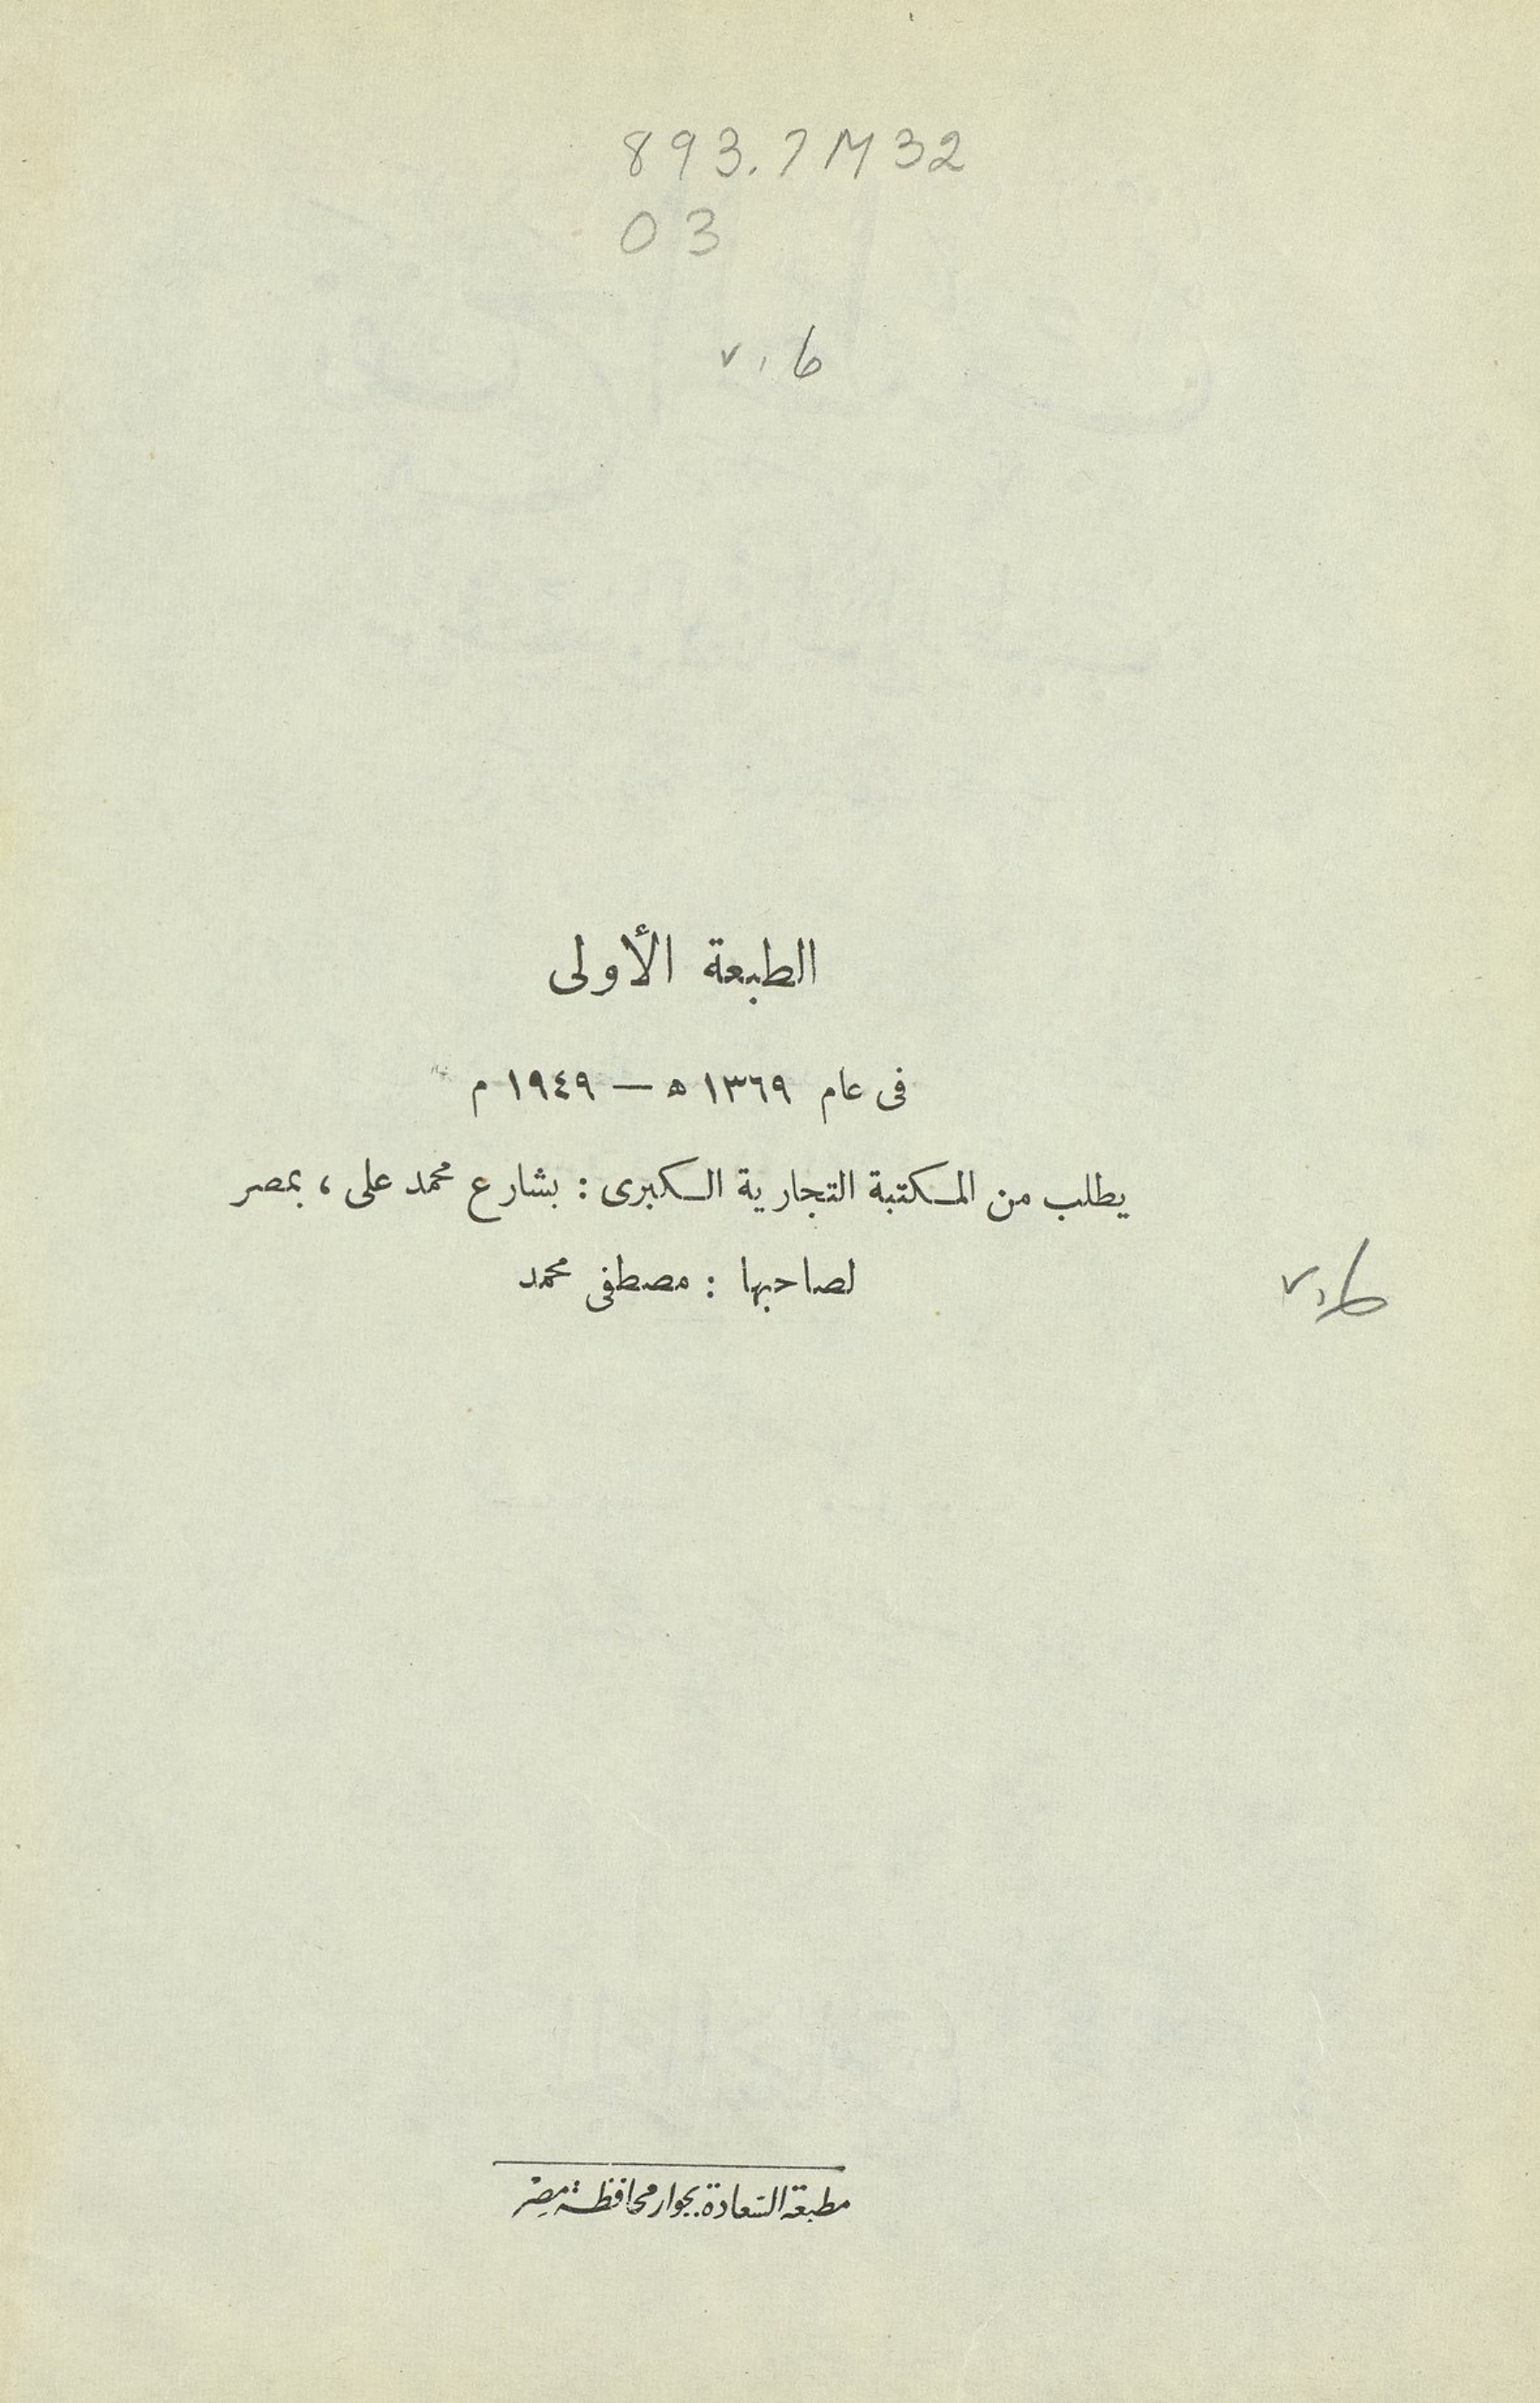 893.7M32
03
v. 6
الطبعة الأولى
فى عام ١٣٦٩ ھ — ١٩٤٩ م
يطلب من المكتبة التجارية الكبرى : بشارع محمد على ، بمصر
لصاحبها : مصطفى محمد
v.6
مطبعة السعادة بجوار محافظة مصر